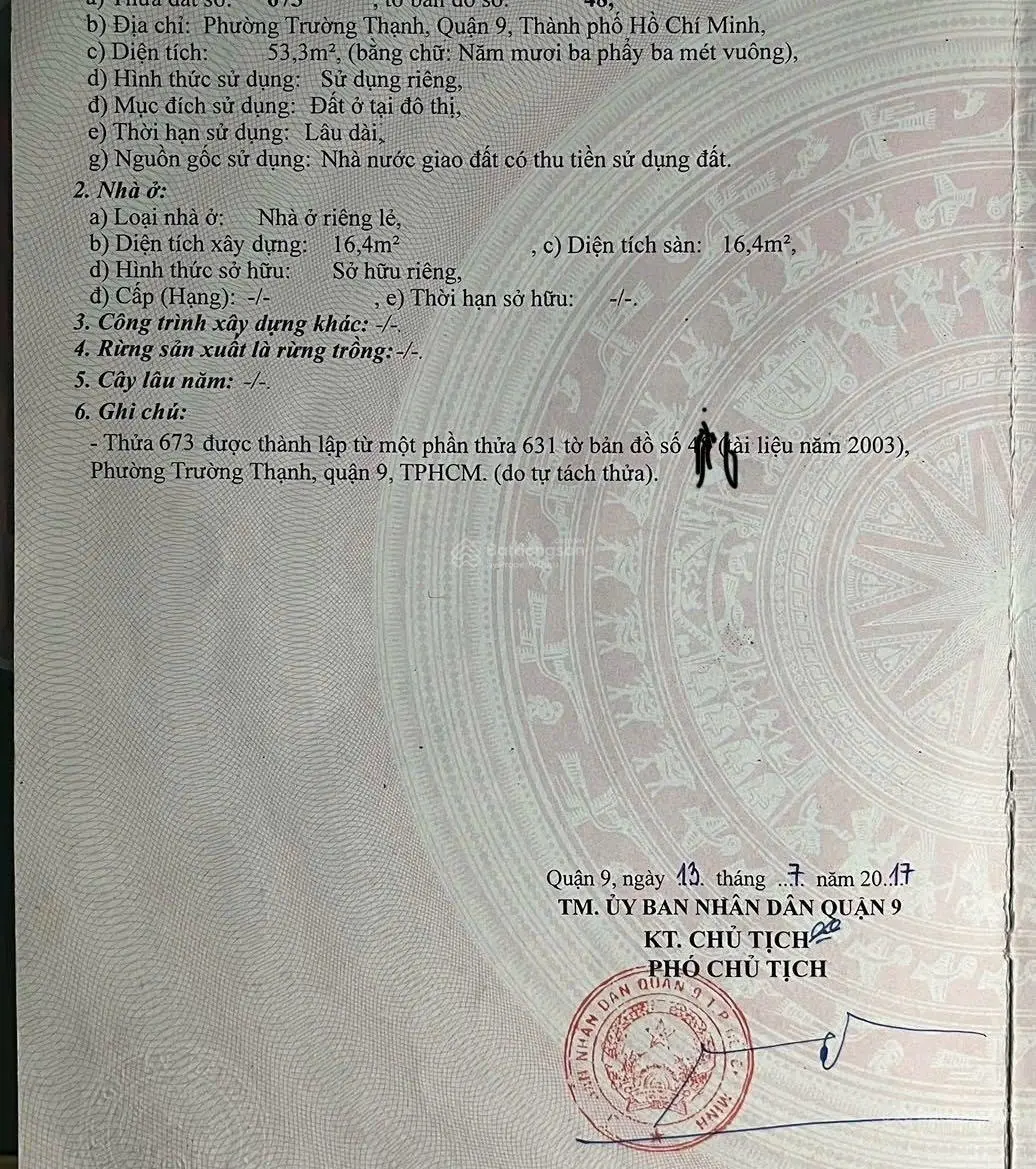 a) Thửa đất số: 673 , tờ bản đồ số: 48,
b) Địa chỉ: Phường Trường Thạnh, Quận 9, Thành phố Hồ Chí Minh,
c) Diện tích: 53,3m², (bằng chữ: Năm mươi ba phẩy ba mét vuông),
d) Hình thức sử dụng: Sử dụng riêng,
đ) Mục đích sử dụng: Đất ở tại đô thị,
e) Thời hạn sử dụng: Lâu dài,
g) Nguồn gốc sử dụng: Nhà nước giao đất có thu tiền sử dụng đất.
2. Nhà ở:
a) Loại nhà ở: Nhà ở riêng lẻ,
b) Diện tích xây dựng: 16,4m² , c) Diện tích sàn: 16,4m²,
d) Hình thức sở hữu: Sở hữu riêng,
đ) Cấp (Hạng): -/- , e) Thời hạn sở hữu: -/-.
3. Công trình xây dựng khác: -/-.
4. Rừng sản xuất là rừng trồng: -/-.
5. Cây lâu năm: -/-.
6. Ghi chú:
- Thửa 673 được thành lập từ một phần thửa 631 tờ bản đồ số (tài liệu năm 2003),
Phường Trường Thạnh, quận 9, TPHCM. (do tự tách thửa).
Batdongsan
Quận 9, ngày 13 tháng ...7. năm 20.17
TM. ỦY BAN NHÂN DÂN QUẬN 9
KT. CHỦ TỊCH
PHÓ CHỦ TỊCH
NHÂN DÂN QUẬN 9 T.P MINH